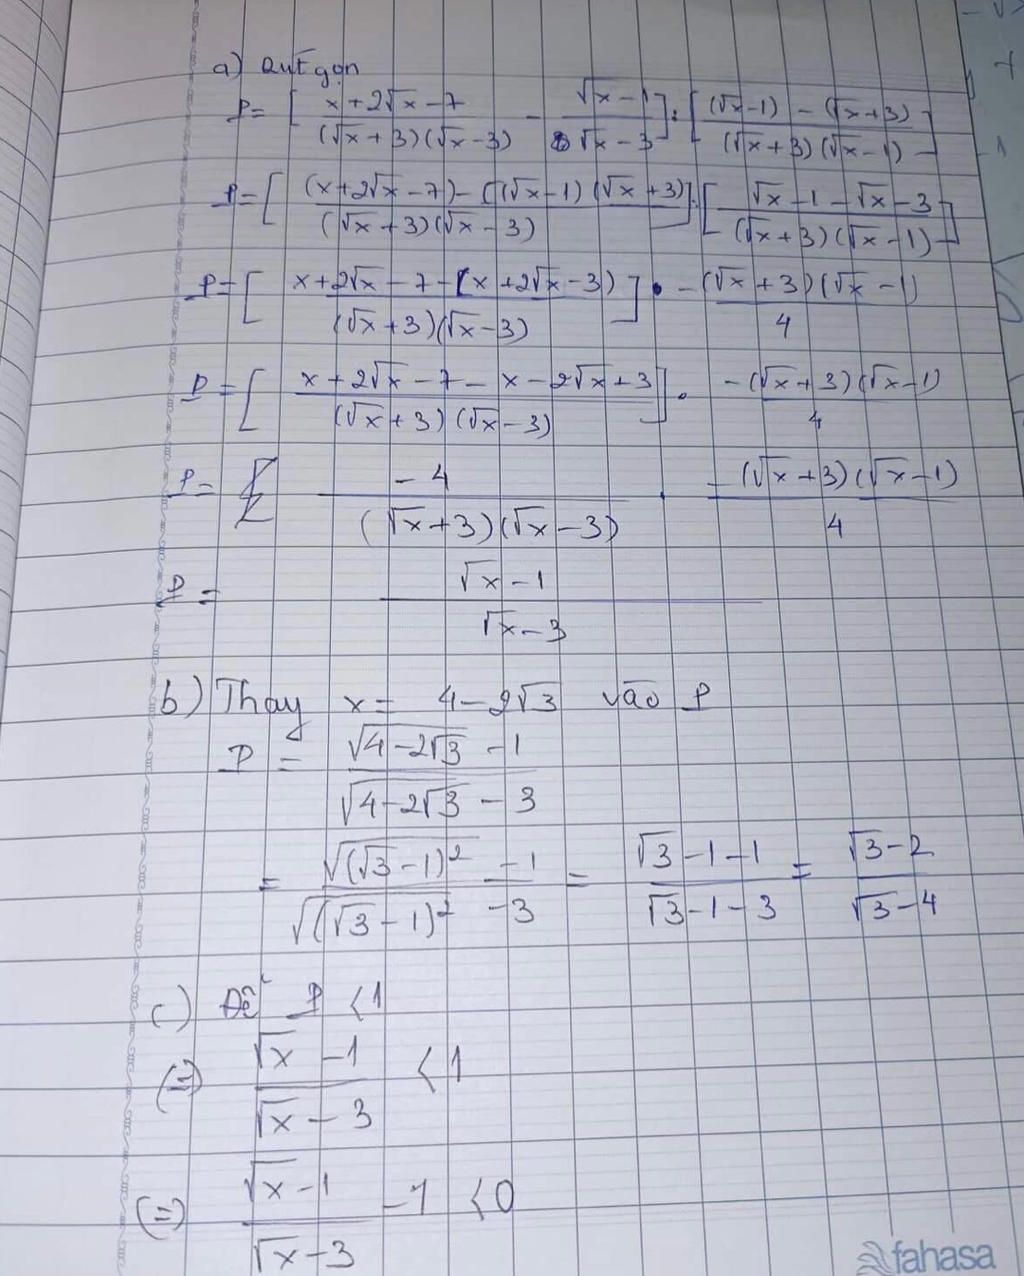 a) Rút gọn
P = [ (x+2√x-7)/((√x+3)(√x-3)) - (√x-1)/(√x-3) ] : [ ((√x-1) - (√x+3))/((√x+3)(√x-1)) ]
P = [ ((x+2√x-7) - ((√x-1)(√x+3))/((√x+3)(√x-3)) ] : [ (√x-1-√x-3)/((√x+3)(√x-1)) ]
P = [ (x+2√x-7-(x+2√x-3))/((√x+3)(√x-3)) ] . -(√x+3)(√x-1)/4
P = [ (x+2√x-7-x-2√x+3)/((√x+3)(√x-3)) ] . -(√x+3)(√x-1)/4
P = -4/((√x+3)(√x-3)) . -(√x+3)(√x-1)/4
P = (√x-1)/(√x-3)
b) Thay x = 4-2√3 vào P
P = (√(4-2√3) -1)/(√(4-2√3) -3)
= (√((√3-1)²) -1)/(√((√3-1)²) -3) = (√3-1-1)/(√3-1-3) = (√3-2)/(√3-4)
c) Để P <1
(=) (√x-1)/(√x-3) < 1
(=) (√x-1)/(√x-3) -1 <0
fahasa